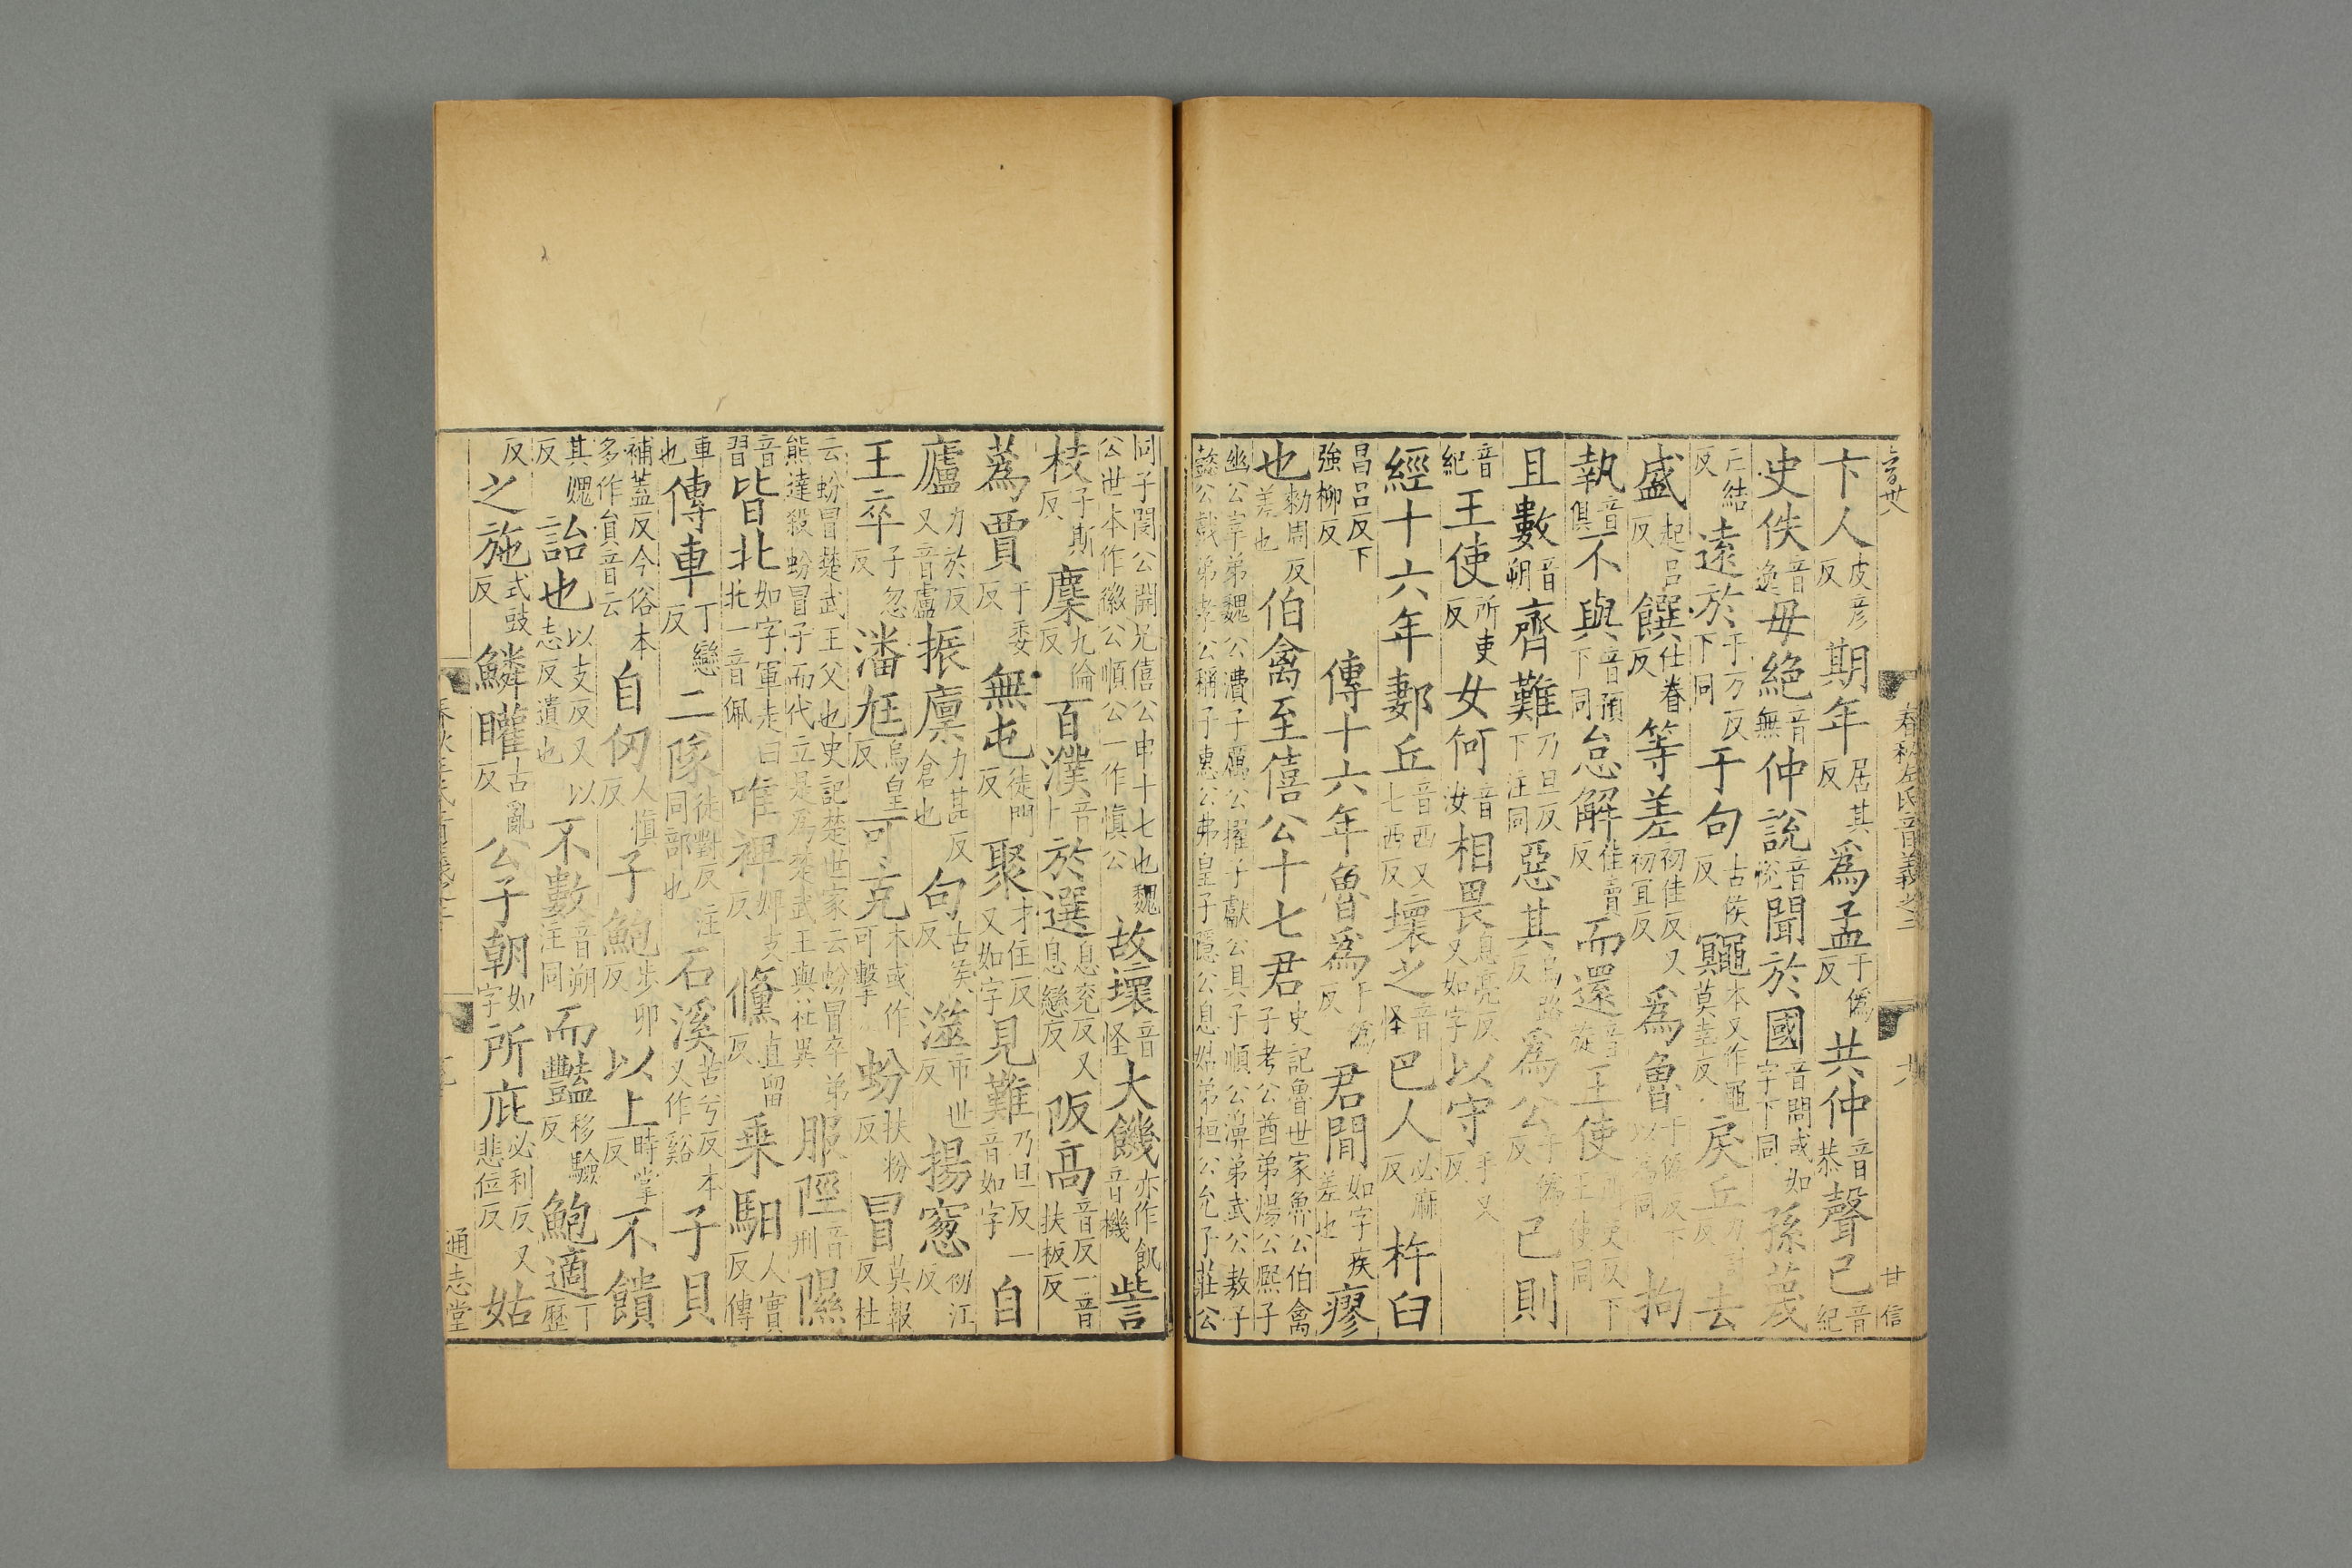 卞人皮彦反期年居其反爲孟于僞反共仲音恭聲己音紀
史佚音逸毋絶音無仲說音悅聞於國音問或如字下同孫蔑
亡結反遠於于万反下同于句古侯反黽本又作黽莫幸反戾丘力計反去
盛起吕反饌仕眷反等差初佳反又初宜反爲魯于僞反下以爲同拘
執音俱不與音預下同怠解佳賣反而還音旋王使所吏反下王使同
且數音朔齊難乃旦反下注同惡其烏路反爲公于僞反己則
音紀王使所吏反女何音汝相畏息亮反又如字以守手又反
經十六年郪丘音西又七西反壞之音怪巴人必麻反杵臼
昌吕反下強柳反傳十六年魯爲于僞反君閒如字疾差也瘳
也勑周反差也伯禽至僖公十七君史記魯世家魯公伯禽子考公酋弟煬公熈子
幽公宰弟魏公濞子厲公擢子獻公具子順公濞弟武公敖子懿公戯弟孝公稱子惠公弗皇子隱公息姑弟桓公允子莊公
同子閔公開兄僖公申十七也魏公世本作徽公順公一作愼公故壞音怪大饑亦作飢音機訾
枝子斯反麇九倫反百濮音卜於選息兖反又息戀反阪高音反一音扶板反
蒍賈于委反無屯徒門反聚才住反又如字見難乃旦反一音如字自
廬力於反又音盧振廩力甚反倉也句古矦反澨市世反揚窻初江反
王卒子忽反潘尫烏皇反可克本或作可擊蚡扶粉反冒莫報反杜
云蚡冒楚武王父也史記楚世家云蚡冒卒弟熊達殺蚡冒子而代立是爲楚武王與杜異服陘音刑隰
音習皆北如字軍走曰北一音佩唯裨婢支反鯈直留反乗馹人實反傳
車也傳車丁戀反二隊徒對反注同部也石溪苦兮反本又作谿子貝
補蓋反今俗本多作員音云自仞人愼反子鮑步卯反以上時掌反不饋
其媿反詒也以支反又以志反遺也不數音朔注同而豔移驗反鮑適丁歷
反之施式豉反鱗矔古亂反公子朝如字所庇必利反又悲位反姑
春秋左氏音義之二
通志堂
甘信